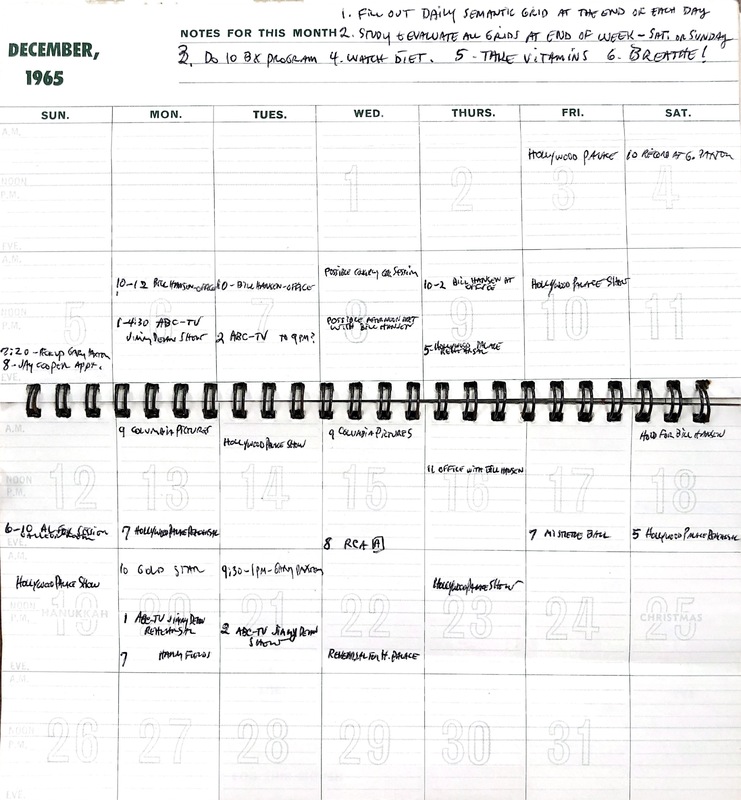 1. FILL OUT DAILY SEMANTIC GRID AT THE END OF EACH DAY
NOTES FOR THIS MONTH 2. STUDY & EVALUATE ALL GRIDS AT END OF WEEK - SAT. OR SUNDAY
DECEMBER,
1965
3. DO 10 BX PROGRAM 4. WATCH DIET. 5 - TAKE VITAMINS 6. BREATHE!
SUN. MON. TUES. WED. THURS. FRI. SAT.
A.M.
HOLLYWOOD PALACE 10 RECORD AT G.
NOON
P.M.
1 2 3 4
EVE.
A.M.
POSSIBLE SESSION
10-12 BILL HANSEN-OFFICE 10 - BILL HANSEN-OFFICE 10-2 BILL HANSEN AT OFFICE HOLLYWOOD PALACE SHOW
NOON
P.M.
5 6 7 8 9 10 11
1-4:30 ABC-TV
JIMMY DEAN SHOW
2 ABC-TV TO 9PM?
POSSIBLE AFTERNOON
WITH BILL HANSEN
5- HOLLYWOOD PALACE
REHEARSAL
- PICK UP GARY PAXTON
8 - JAY COOPER APPT.
EVE.
A.M.
9 COLUMBIA PICTURES
HOLLYWOOD PALACE SHOW
9 COLUMBIA PICTURES
HOLD FOR BILL HANSEN
11 OFFICE WITH BILL HANSEN
NOON
P.M.
12 13 14 15 16 17 18
6-10 SESSION
7 HOLLYWOOD PALACE REHEARSAL
8 RCA A
7 BALL
5 HOLLYWOOD PALACE REHEARSAL
EVE.
A.M.
HOLLYWOOD PALACE SHOW
10 GOLD STAR
9:30-1PM - GARY PAXTON
HOLLYWOOD PALACE SHOW
NOON
P.M.
19 HANUKKAH 20 21 22 23 24 25 CHRISTMAS
1 ABC-TV JIMMY DEAN
REHEARSAL
2 ABC-TV JIMMY DEAN
SHOW
7 FIELDS
REHEARSAL FOR H. PALACE
EVE.
A.M.
NOON
P.M.
26 27 28 29 30 31